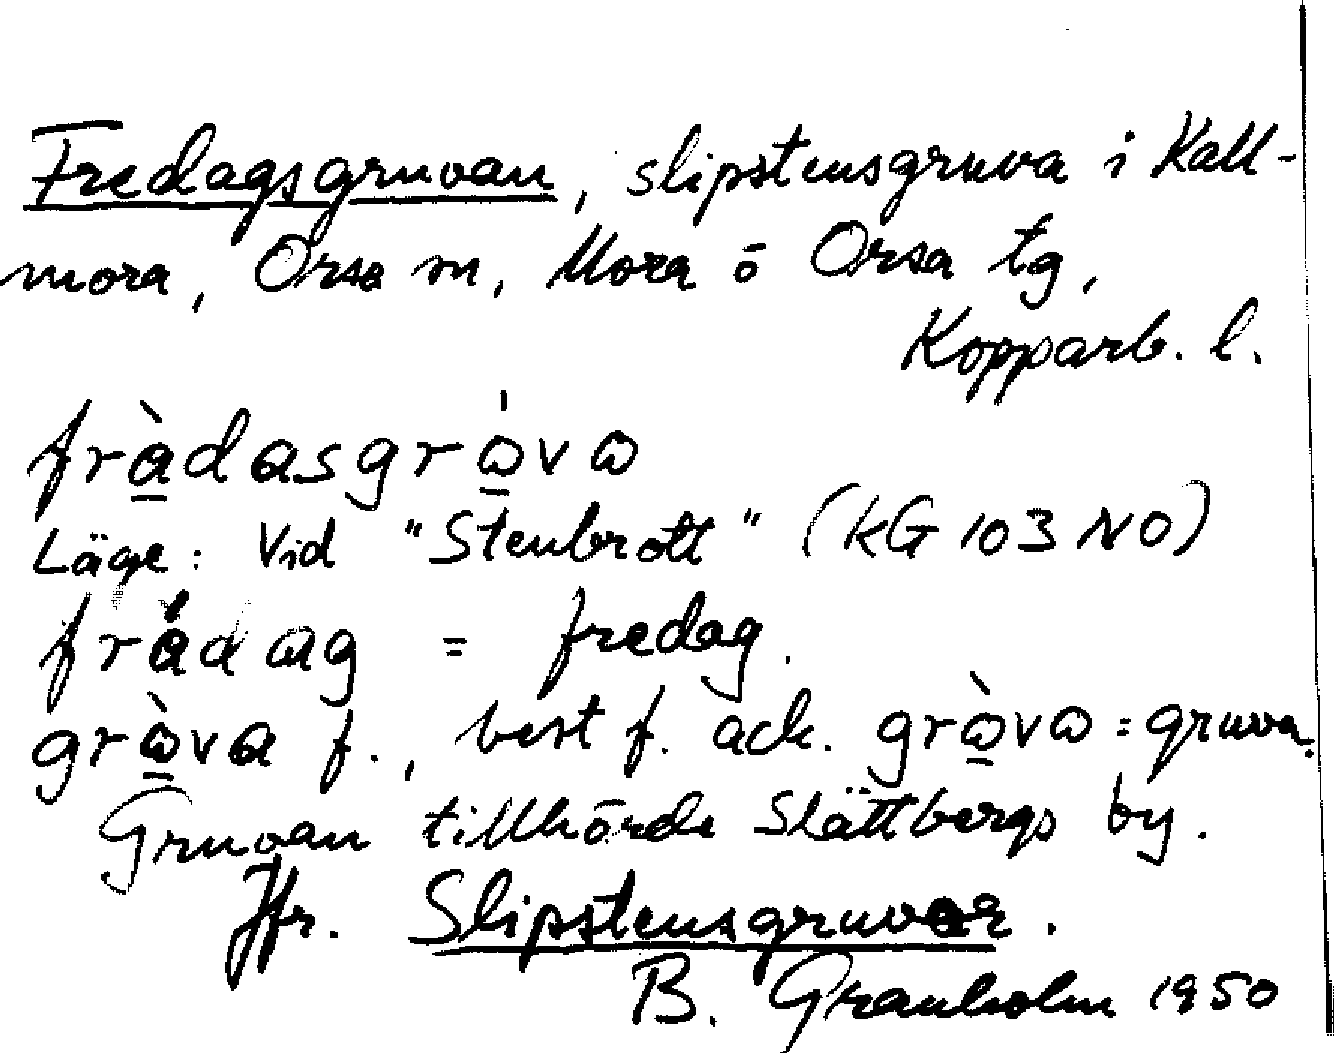 Fredagsgruvan, slipstensgruva i Kall-
mora, Orsa sn, Mora o Orsa tg,
Kopparb. l.
frà̱dasgrò̱vɷ
Läge: Vid "Stenbrott" (KG 103 NO)
frádɑg = fredag.
grɷ̱̀va f., best f. ack. grɷ̱̀vɷ = gruva.
Gruvan tillhörde Slättbergs by.
Jfr. Slipstensgruvor.
B. Granholm 1950